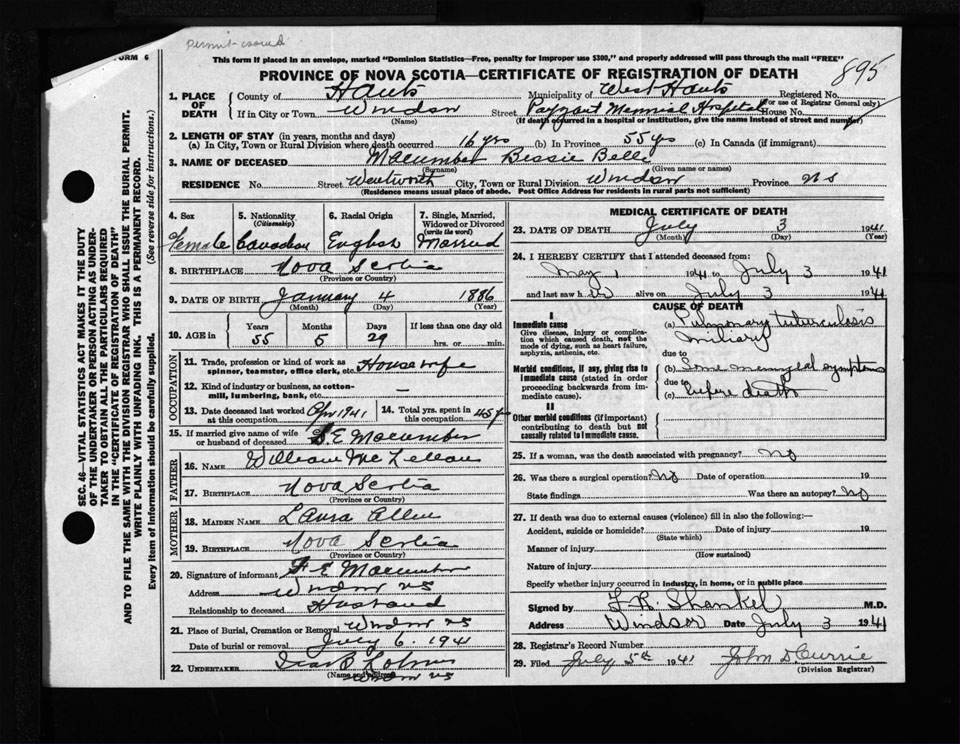 permit issued
FORM 6
This form if placed in an envelope, marked "Dominion Statistics—Free, penalty for improper use $300," and properly addressed will pass through the mail "FREE"
PROVINCE OF NOVA SCOTIA—CERTIFICATE OF REGISTRATION OF DEATH
895
1. PLACE OF DEATH County of Hants Municipality of West Hants Registered No.
(For use of Registrar General only)
If in City or Town Windsor Street Payzant Memorial Hospital House No.
(Name) (If death occurred in a hospital or institution, give the name instead of street and number)
2. LENGTH OF STAY (in years, months and days)
(a) In City, Town or Rural Division where death occurred 16 yrs (b) In Province 55 yrs (c) In Canada (if immigrant)
3. NAME OF DECEASED Macumber Bessie Belle
(Surname) (Given name or names)
RESIDENCE No. Street Wentworth City, Town or Rural Division Windsor Province NS
(Residence means usual place of abode. Post Office Address for residents in rural parts not sufficient)
4. Sex Female
5. Nationality (Citizenship) Canadian
6. Racial Origin English
7. Single, Married, Widowed or Divorced (write the word) Married
8. BIRTHPLACE Nova Scotia
(Province or Country)
9. DATE OF BIRTH January 4 1886
(Month) (Day) (Year)
10. AGE in Years Months Days If less than one day old
55 5 29 hrs. or min.
OCCUPATION
11. Trade, profession or kind of work as spinner, teamster, office clerk, etc. Housewife
12. Kind of industry or business, as cotton-mill, lumbering, bank, etc. —
13. Date deceased last worked at this occupation Apr 1941
14. Total yrs. spent in this occupation 45 y
15. If married give name of wife or husband of deceased E Macumber
FATHER
16. NAME William McLellan
17. BIRTHPLACE Nova Scotia
(Province or Country)
MOTHER
18. MAIDEN NAME Laura Allen
19. BIRTHPLACE Nova Scotia
(Province or Country)
20. Signature of informant E Macumber
Address Windsor NS
Relationship to deceased Husband
21. Place of Burial, Cremation or Removal Windsor NS
Date of burial or removal July 6 1941
22. UNDERTAKER
(Name and address)
Windsor NS
MEDICAL CERTIFICATE OF DEATH
23. DATE OF DEATH July 3 1941
(Month) (Day) (Year)
24. I HEREBY CERTIFY that I attended deceased from:
May 1 1941 to July 3 1941
and last saw her alive on July 3 1941
CAUSE OF DEATH
I
Immediate cause
Give disease, injury, or complication which caused death, not the mode of dying, such as heart failure, asphyxia, asthenia, etc.
(a) Pulmonary tuberculosis
miliary
due to
Morbid conditions, if any, giving rise to immediate cause (stated in order proceeding backwards from immediate cause).
(b) Some meningeal symptoms
due to
(c) before death
II
Other morbid conditions (if important) contributing to death but not causally related to immediate cause.
25. If a woman, was the death associated with pregnancy? No
26. Was there a surgical operation? No Date of operation 19
State findings Was there an autopsy? No
27. If death was due to external causes (violence) fill in also the following:—
Accident, suicide or homicide? Date of injury 19
(State which)
Manner of injury
(How sustained)
Nature of injury
Specify whether injury occurred in industry, in home, or in public place
Signed by F. R. Shankel M.D.
Address Windsor Date July 3 1941
28. Registrar's Record Number
29. Filed July 5th 1941 John D. Currie
(Division Registrar)
SEC. 46—VITAL STATISTICS ACT MAKES IT THE DUTY
OF THE UNDERTAKER OR PERSON ACTING AS UNDER-
TAKER TO OBTAIN ALL THE PARTICULARS REQUIRED
IN THE "CERTIFICATE OF REGISTRATION OF DEATH"
AND TO FILE THE SAME WITH THE DIVISION REGISTRAR WHO SHALL ISSUE THE BURIAL PERMIT.
WRITE PLAINLY WITH UNFADING INK. THIS IS A PERMANENT RECORD.
Every item of Information should be carefully supplied. (See reverse side for instructions.)